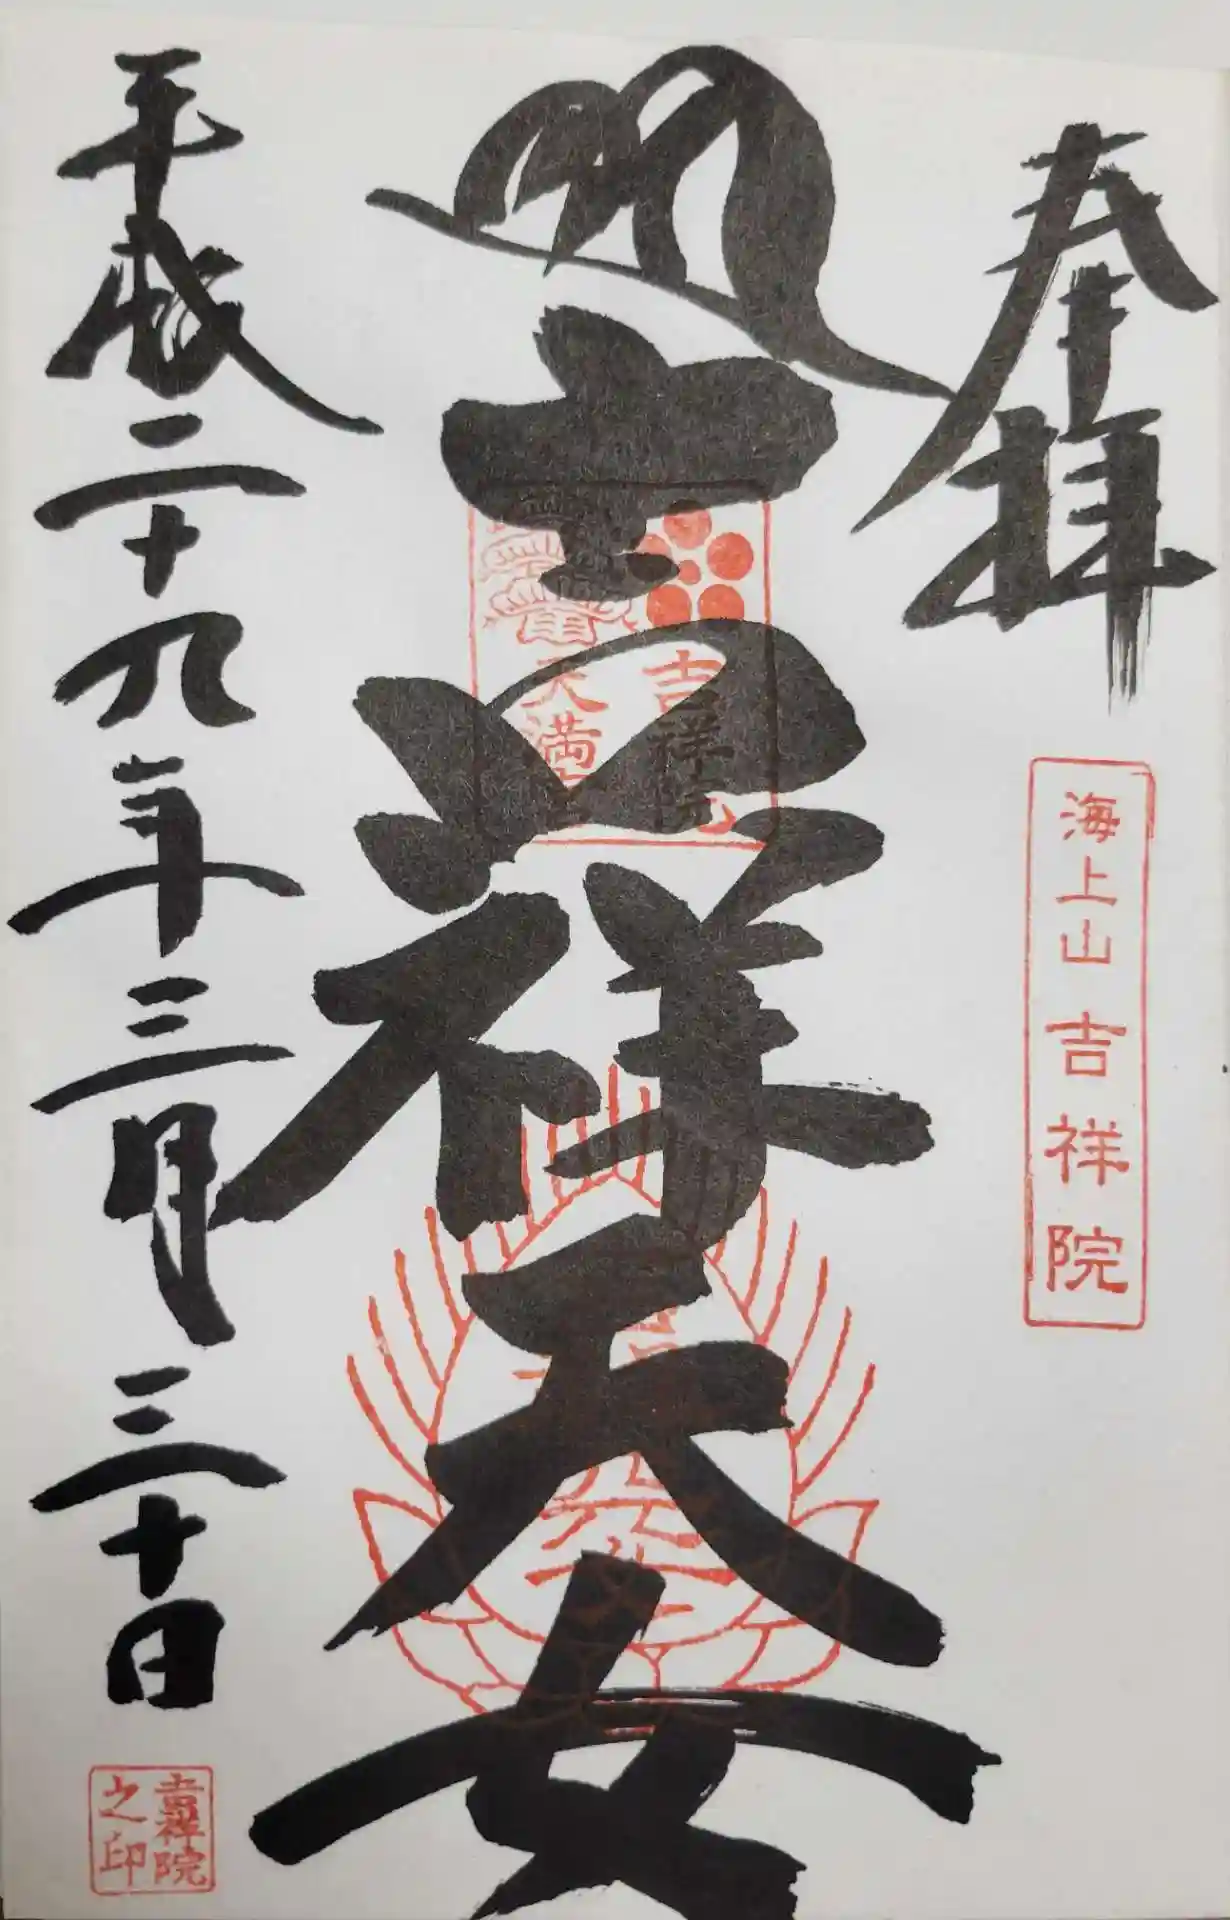 奉拝
海上山吉祥院
吉祥天女
吉祥院
天満宮
平成二十九年三月三十日
吉祥院
之印